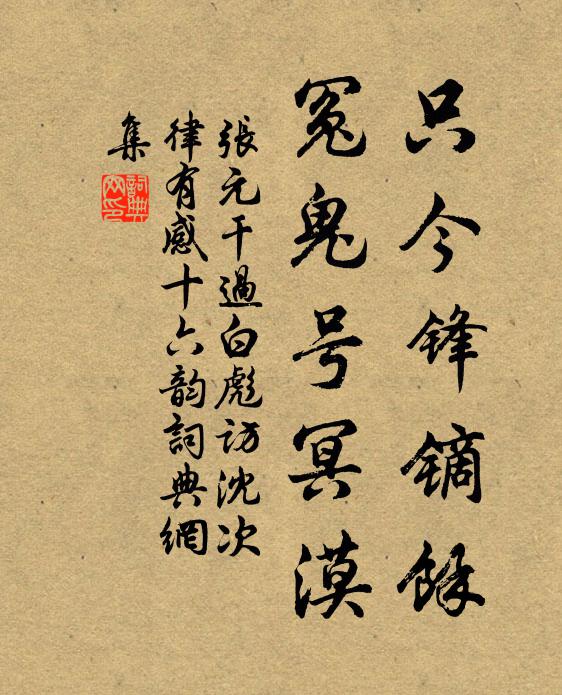 只今锋镝馀
冤鬼号冥漠
張元干過白彪訪沈次
律有感十六韵詞典網
集
詞典網印